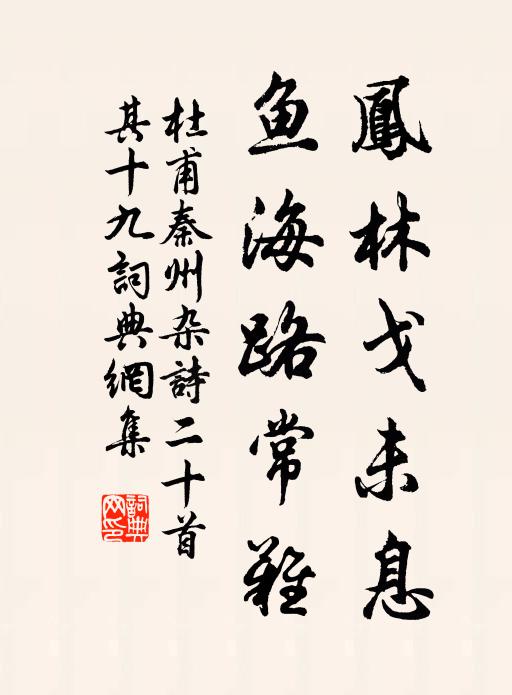 鳳林戈未息
鱼海路常難
杜甫秦州杂詩二十首
其十九詞典網集
詞典
网印